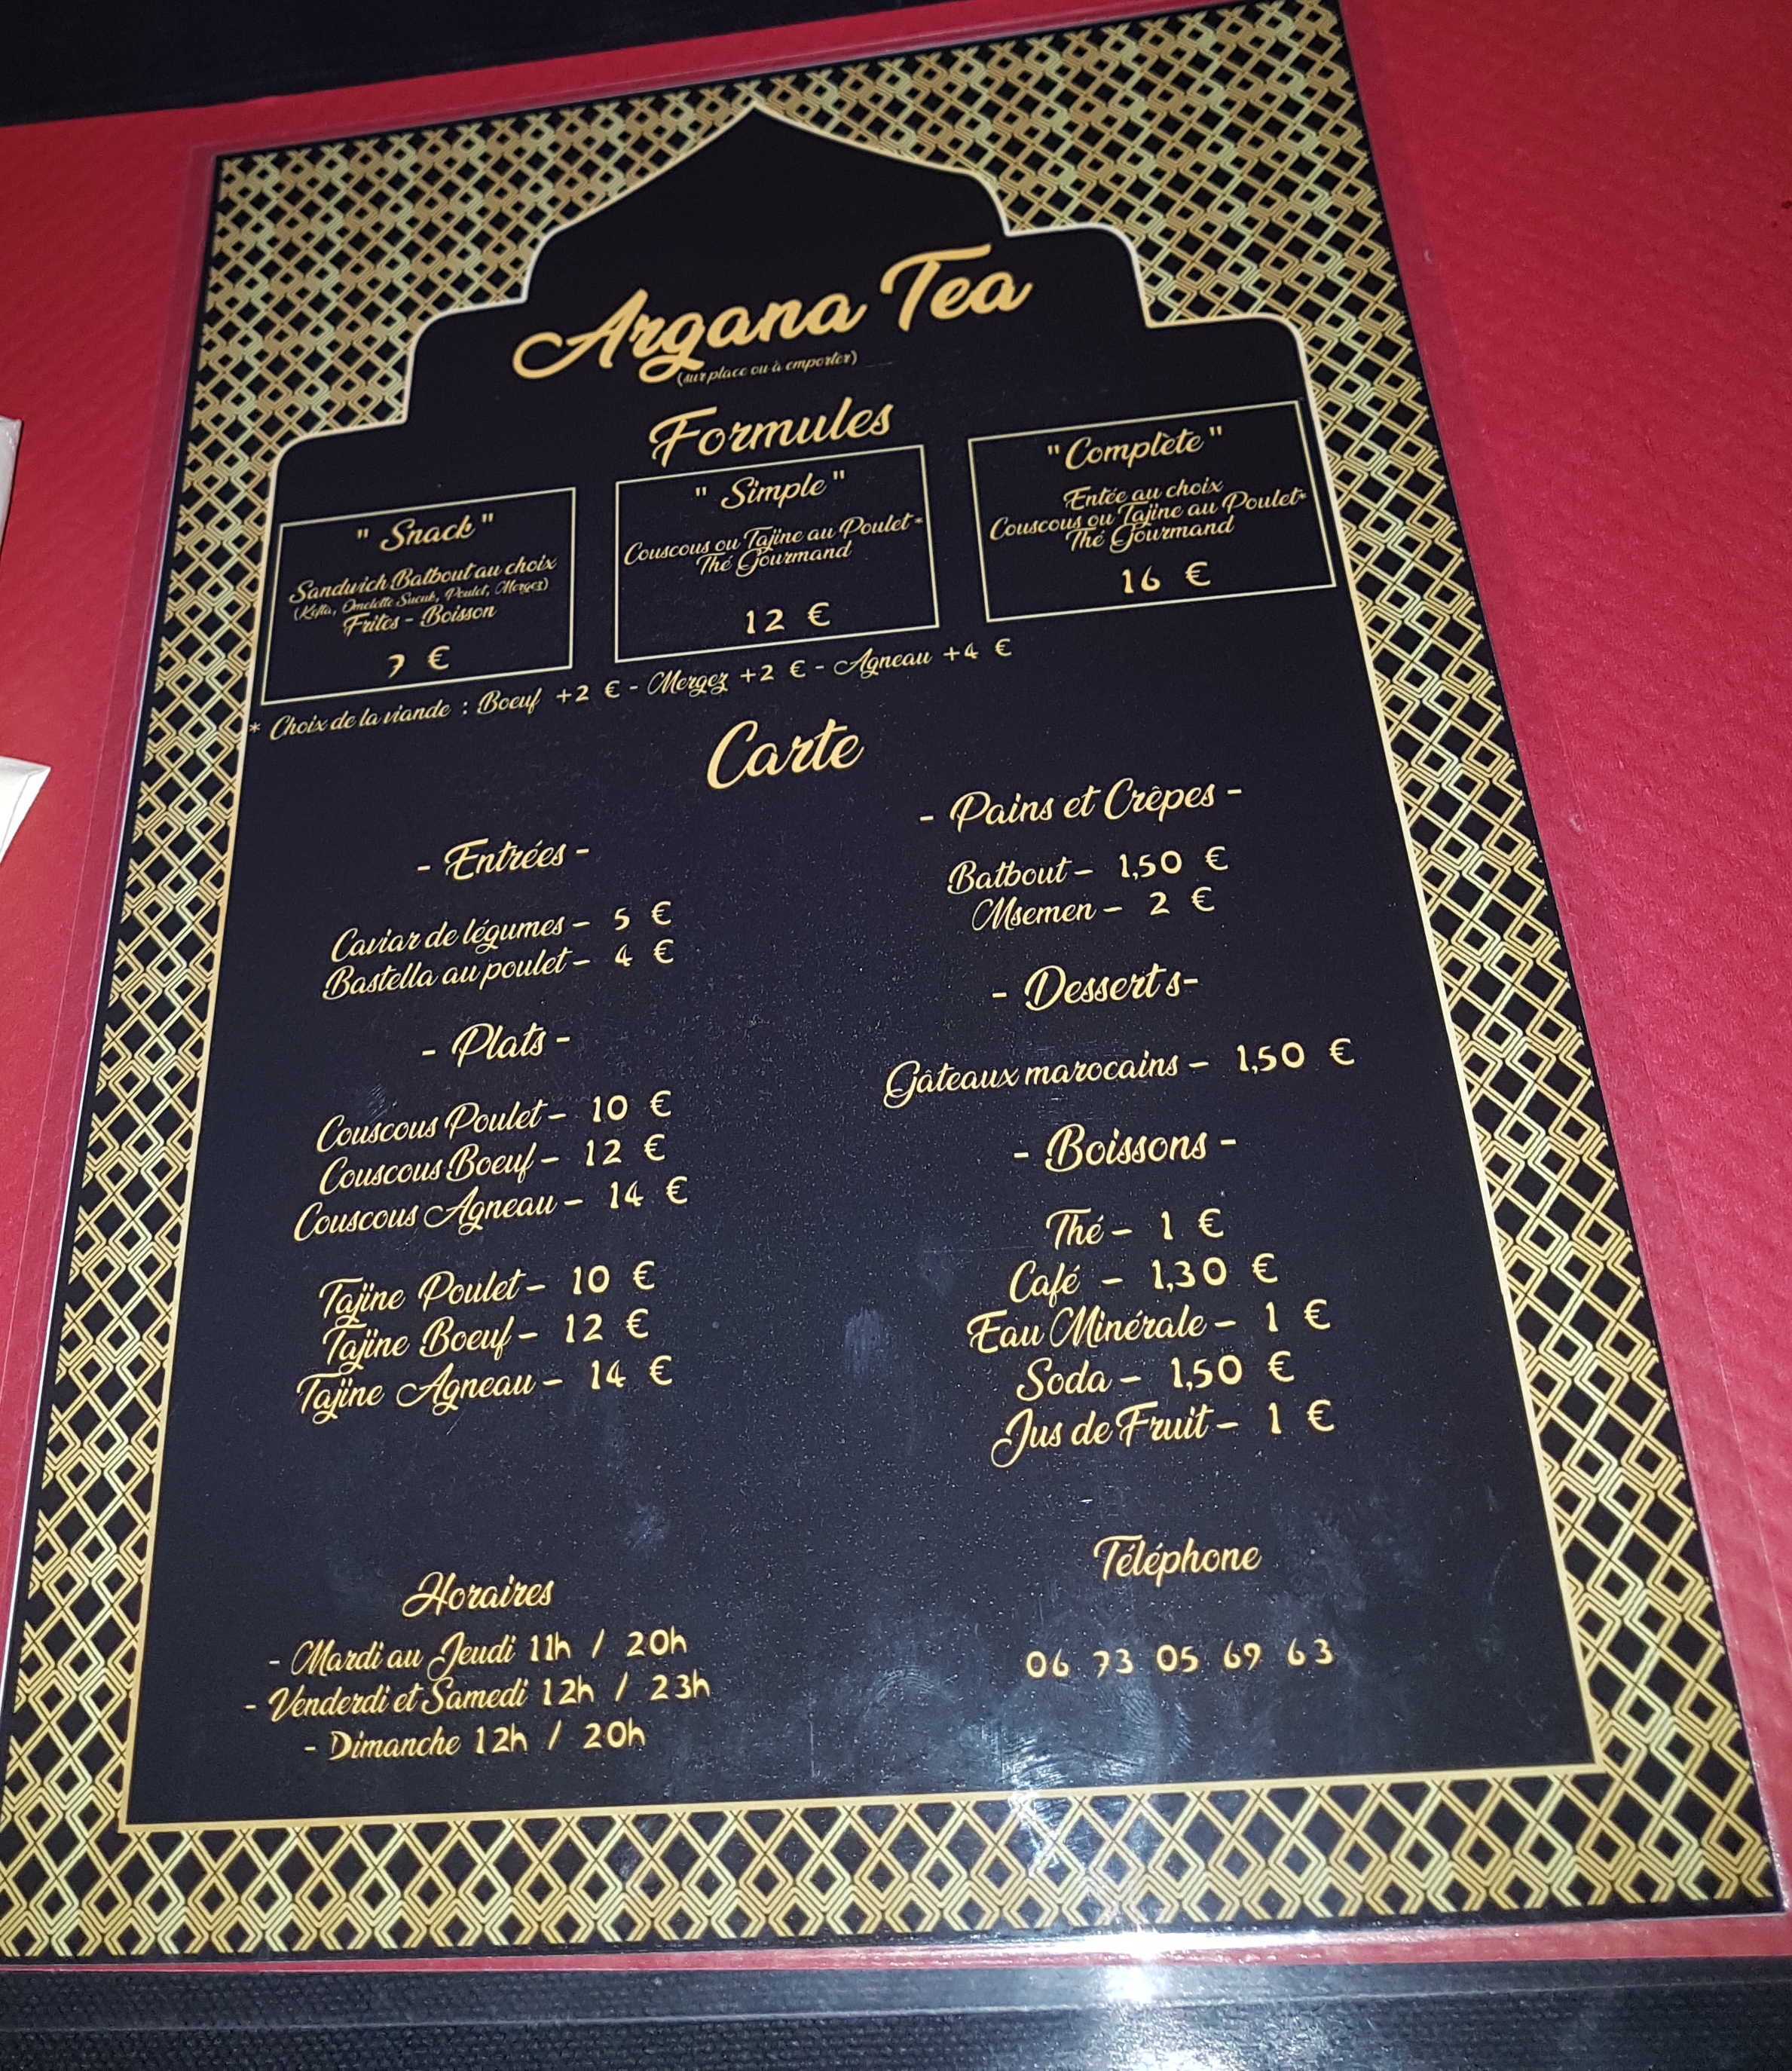 Argana Tea
(sur place ou à emporter)
Formules
" Snack "
Sandwich Batbout au choix
(Kefta, Omelette Sucuk, Poulet, Mergez)
Frites - Boisson
7 €
" Simple "
Couscous ou Tajine au Poulet*
Thé Gourmand
12 €
" Complète "
Entée au choix
Couscous ou Tajine au Poulet*
Thé Gourmand
16 €
* Choix de la viande : Boeuf +2 € - Mergez +2 € - Agneau +4 €
Carte
- Entrées -
Caviar de légumes - 5 €
Bastella au poulet - 4 €
- Plats -
Couscous Poulet - 10 €
Couscous Boeuf - 12 €
Couscous Agneau - 14 €
Tajine Poulet - 10 €
Tajine Boeuf - 12 €
Tajine Agneau - 14 €
- Pains et Crêpes -
Batbout - 1,50 €
Msemen - 2 €
- Desserts -
Gâteaux marocains - 1,50 €
- Boissons -
Thé - 1 €
Café - 1,30 €
Eau Minérale - 1 €
Soda - 1,50 €
Jus de Fruit - 1 €
Horaires
- Mardi au Jeudi 11h / 20h
- Venderdi et Samedi 12h / 23h
- Dimanche 12h / 20h
Téléphone
06 73 05 69 63